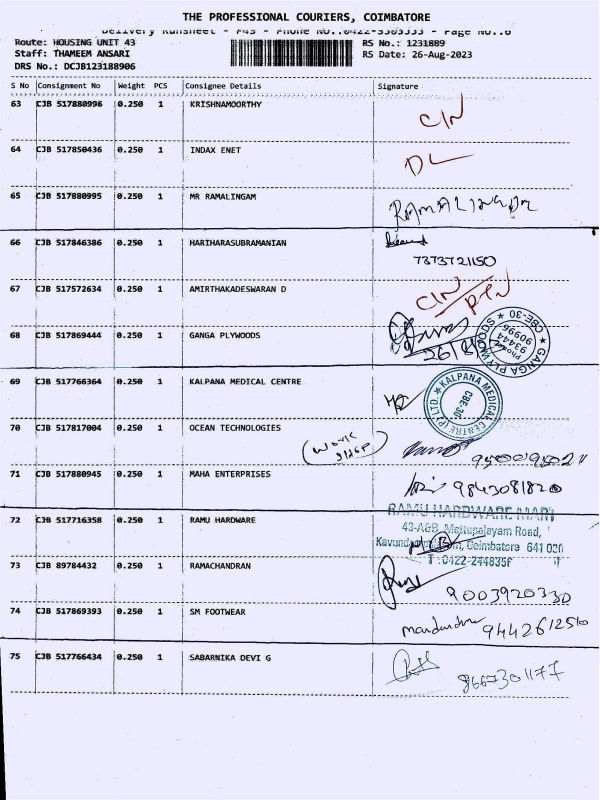 THE PROFESSIONAL COURIERS, COIMBATORE
Delivery Runsheet - P4S - Phone No.:0422-3303333 - Page No.:6
Route: HOUSING UNIT 43
RS No.: 1231889
Staff: THAMEEM ANSARI
RS Date: 26-Aug-2023
DRS No.: DCJB123188906
S No Consignment No Weight PCS Consignee Details Signature
63 CJB 517880996 0.250 1 KRISHNAMOORTHY CIN
64 CJB 517850436 0.250 1 INDAX ENET DL
65 CJB 517880995 0.250 1 MR RAMALINGAM RAMALINGAM
66 CJB 517846386 0.250 1 HARIHARASUBRAMANIAN
7373721150
67 CJB 517572634 0.250 1 AMIRTHAKADESWARAN D CIN/RTN
68 CJB 517869444 0.250 1 GANGA PLYWOODS
26/8/
GANGA PLYWOODS ★ CBE-30 ★
Phone
93444
90996
69 CJB 517766364 0.250 1 KALPANA MEDICAL CENTRE
★ KALPANA MEDICAL CENTRE (P) LTD.
CBE-30
70 CJB 517817004 0.250 1 OCEAN TECHNOLOGIES
(WORK SHOP)
71 CJB 517880945 0.250 1 MAHA ENTERPRISES 9843081820
72 CJB 517716358 0.250 1 RAMU HARDWARE
RAMU HARDWARE MART
43-A&B, Mettupalayam Road,
Coimbatore 641 030
T : 0422-244835
73 CJB 89784432 0.250 1 RAMACHANDRAN
9003920330
74 CJB 517869393 0.250 1 SM FOOTWEAR
9442612510
75 CJB 517766434 0.250 1 SABARNIKA DEVI G
8667301177